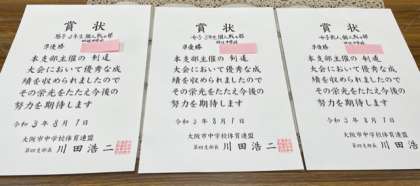 賞状
準優勝
本支部主催の 剣道
大会において優秀な成
績を収められましたので
その栄光をたたえ今後の
努力を期待します
令和 3年 8月 1日
大阪市中学校体育連盟
第四支部長 川田浩二
賞状
準優勝
本支部主催の 剣道
大会において優秀な成
績を収められましたので
その栄光をたたえ今後の
努力を期待します
令和 3年 8月 1日
大阪市中学校体育連盟
第四支部長 川田浩二
賞状
準優勝
本支部主催の 剣道
大会において優秀な成
績を収められましたので
その栄光をたたえ今後の
努力を期待します
令和 3年 8月 1日
大阪市中学校体育連盟
第四支部長 川田浩二